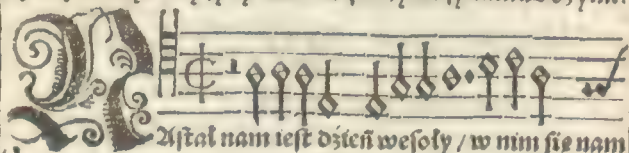 NAſtał nam ieſt dźień weſoły / w nim ſię nam